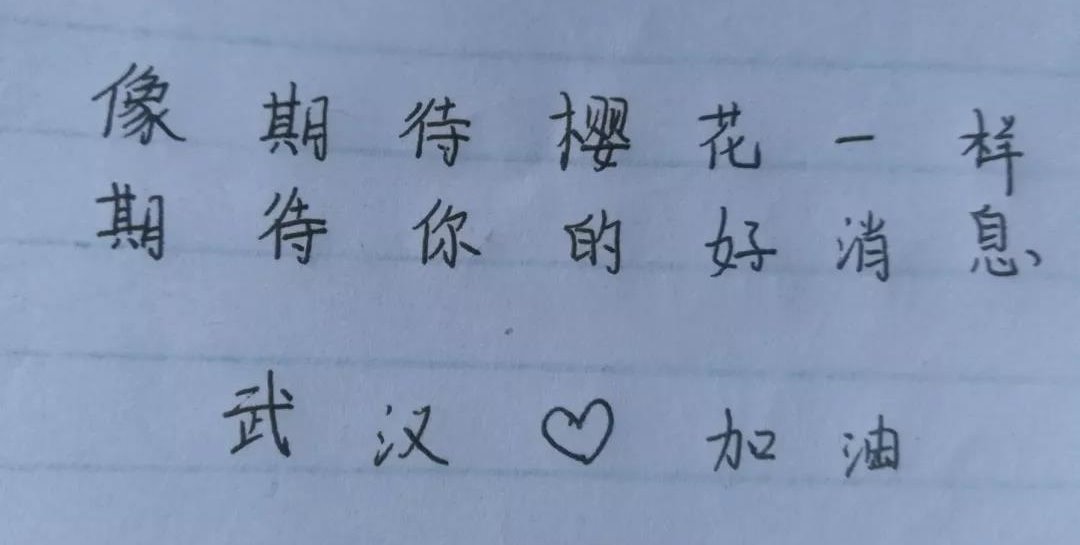 像期待樱花一样
期待你的好消息
武汉♡加油